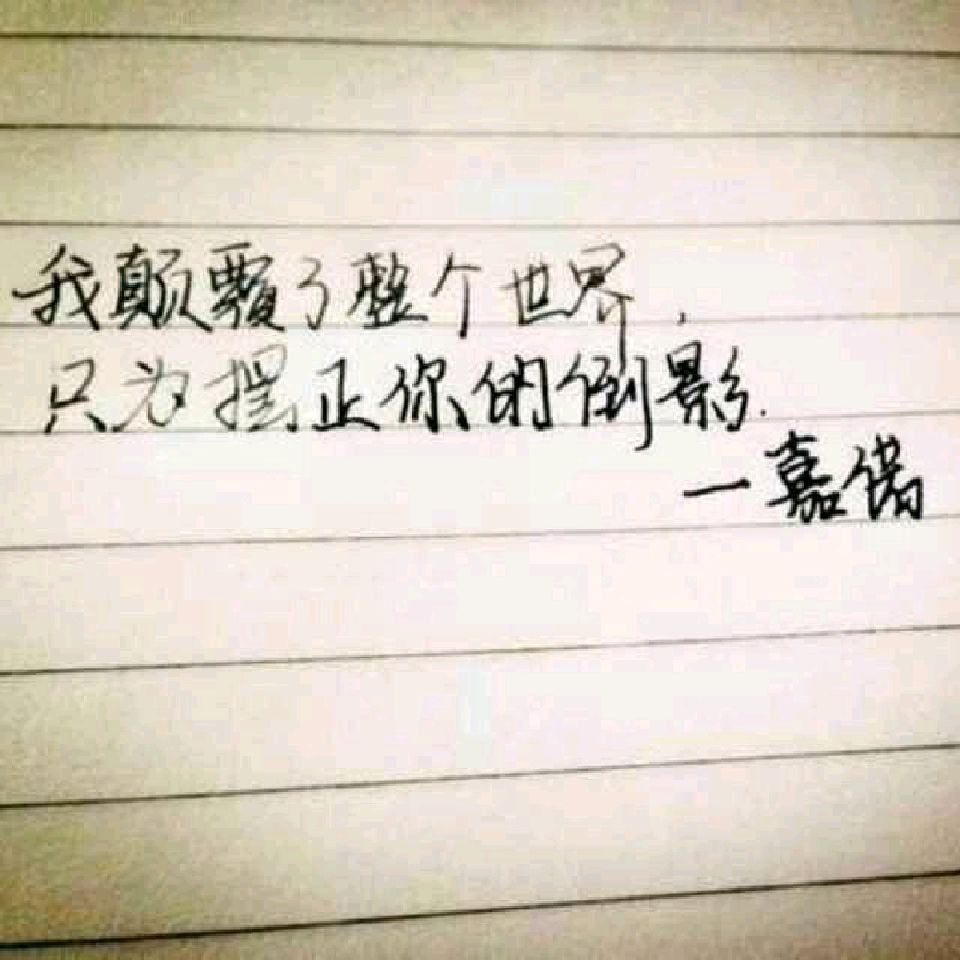 我颠覆了整个世界,
只为摆正你的倒影.
一嘉偌